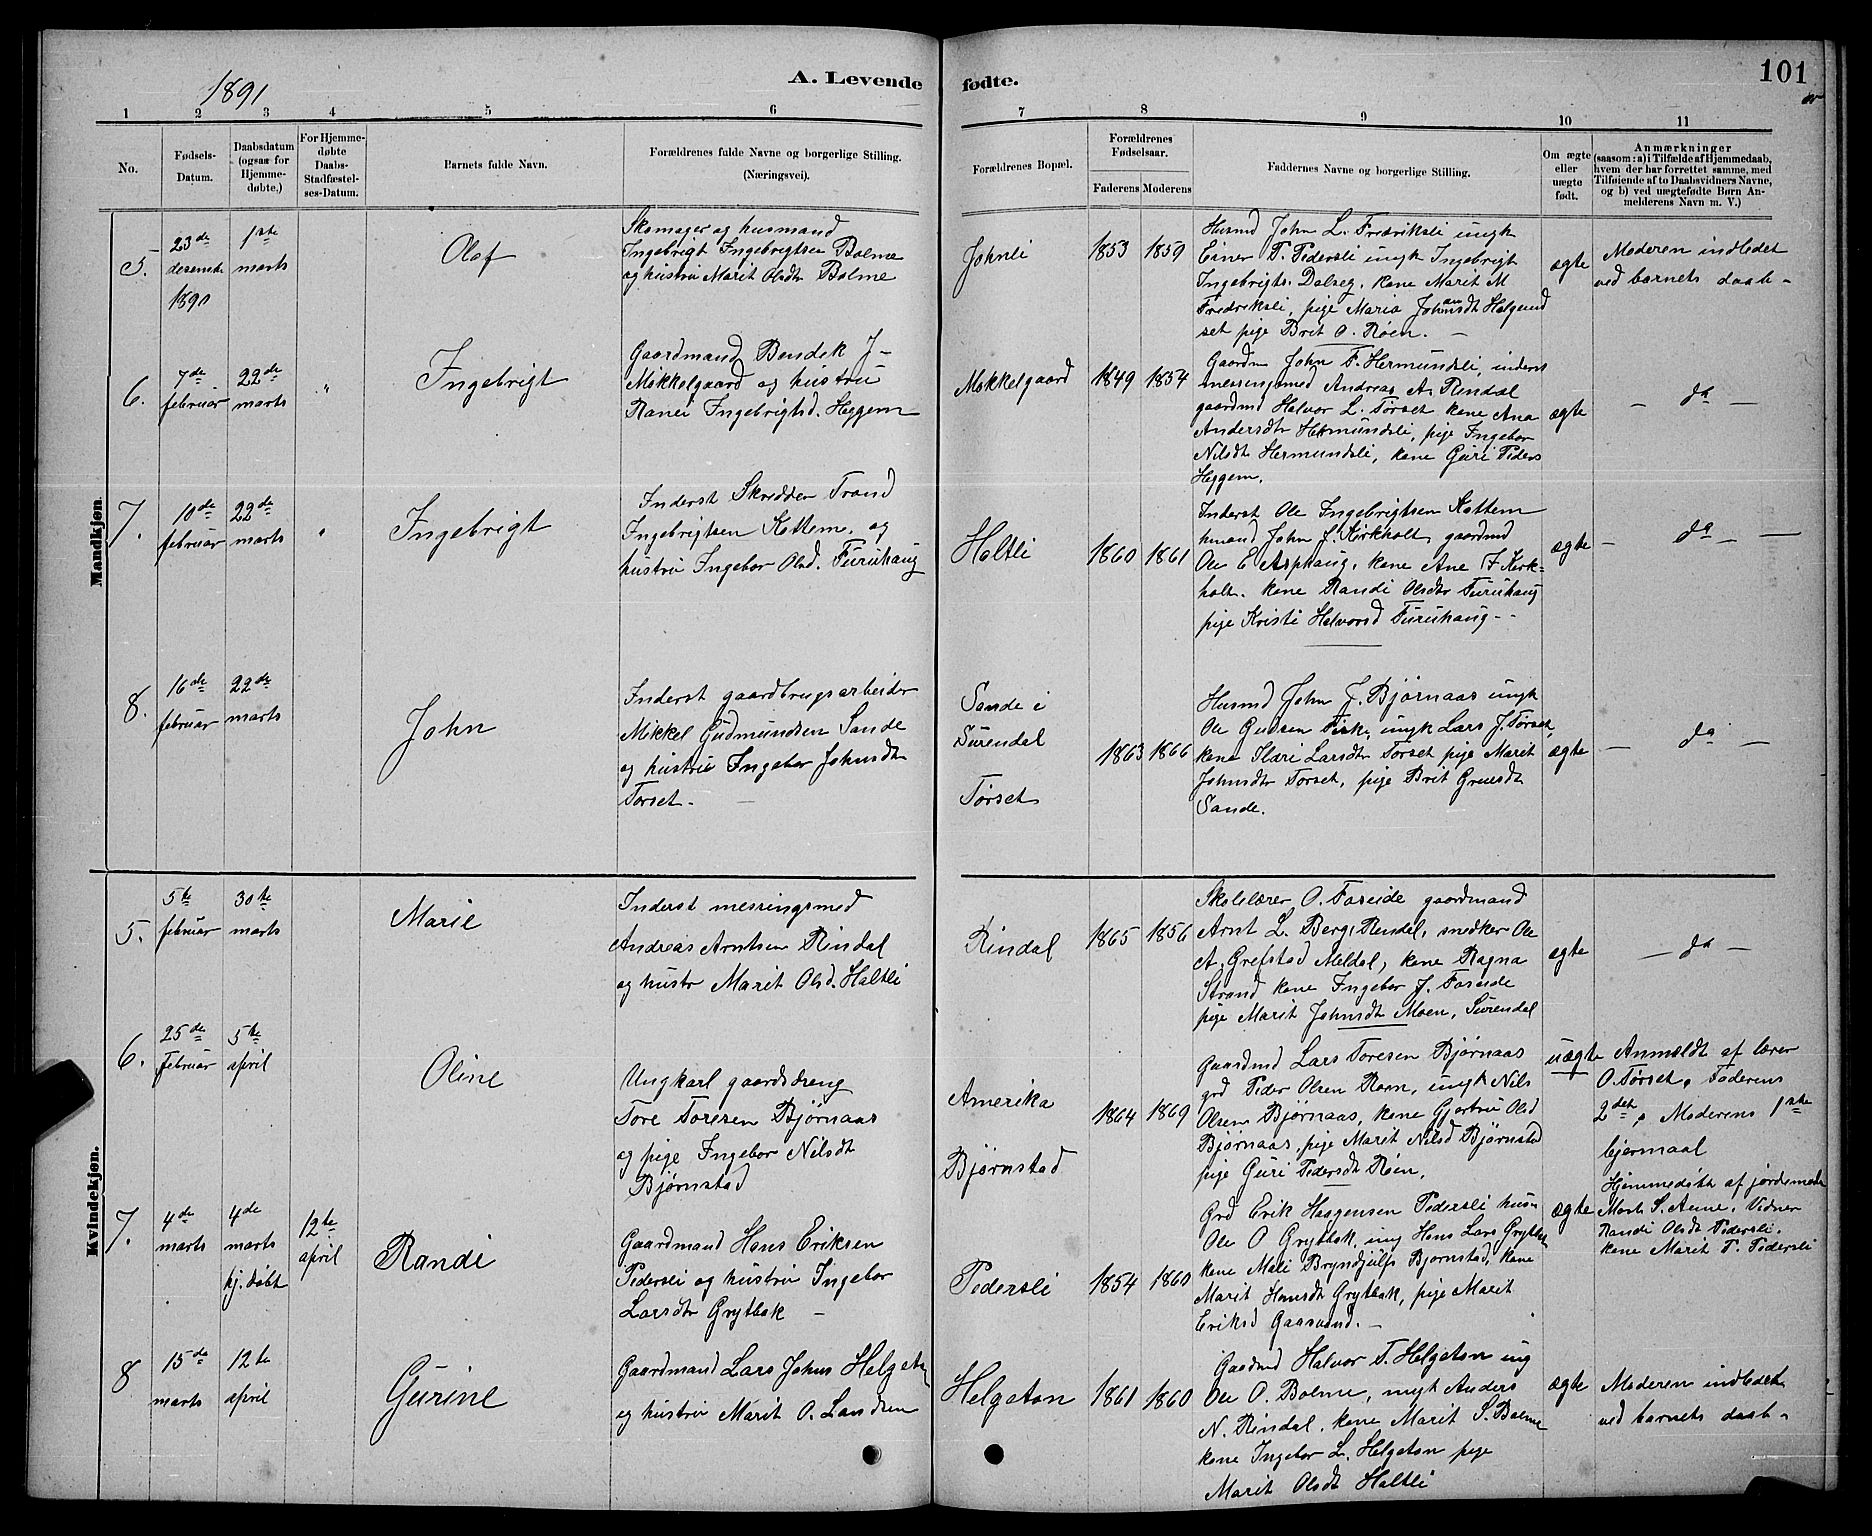 1891
A. Levende fødte.
101
1 2 3 4 5 6 7 8 9 10 11
No.
Fødsels-Datum.
Daabsdatum (ogsaa for Hjemmedøbte.)
For Hjemmedøbte Daabs-Stadfæstelses-Datum.
Barnets fulde Navn.
Forældrenes fulde Navne og borgerlige Stilling. (Næringsvei).
Forældrenes Bopæl.
Forældrenes Fødselsaar.
Faderens Moderens
Faddernes Navne og borgerlige Stilling.
Om ægte eller uægte født.
Anmærkninger
(saasom: a) i Tilfælde af Hjemmedaab,
hvem der har forrettet samme, med
Tilføiende af to Daabsvidners Navne,
og b) ved uægtefødte Børn An-
melderens Navn m. V.)
Mandkjøn.
5.
23de decembr 1890
1ste marts
Olaf
Skomager og husmand
Ingebrigt Ingebrigtsen Bolme
og hustru Marit Olsdt Bolme
Johnli
1853 1859
Husmd John L. Fredriksli ungk
Einer T. Pedersli ungk Ingebrigt
Ingebrigts. Dalseg, kone Marit M
Fredriksli, pige Maria Johansdt Halgund
set pige Brit O. Røen. —
ægte
Moderen indledet
ved barnets daab -
6.
7de februar
22de marts
"
Ingebrigt
Gaardmand Bendek J-
Mikkelgaard og hustru
Ranei Ingebrigtsd. Heggem
Mikkelgaard
1849 1854
Gaardm John F. Hermundsli, inderst
messingsmed Andreas A. Rindal
gaardmd Halvor L. Tørset kone Ana
Andersdtr Hermundsli, pige Ingebor
Nilsdt Hermundsli, kone Guri Peders
Heggem.
ægte
— da —
7.
10de februar
22de marts
"
Ingebrigt
Inderst Skrædder Trond
Ingebrigtsen Kattem, og
hustru Ingebor Olsd. Furuhaug
Haltli
1860 1861
Inderst Ole Ingebrigtsen Kattem
hmand John J. Kirkholt, gaardmd
Ole E Asphaug, kone Ane F Kirk-
holt. kone Randi Olsdtr Furuhaug
pige Kristi Halvorsd Furuhaug - -
ægte
— da — —
8.
16de februar
22de marts
John
Inderst gaardbrugsarbeider
Mikkel Gudmundsen Sande
og hustru Ingebor Johnsdtr
Tørset. —
Sande i
Surendal
Tørset
1863 1866
Husmd John J. Bjørnaas ungk
Ole Gudsen Fiske, ungk Lars J. Tørset,
kone Sleri Larsdtr Tørset pige Marit
Johnsdtr Tørset, pige Brit Gruesdt
Sande.
ægte
— da —
Kvindekjøn.
5.
5te februar
30te marts
Marie
Inderst messingsmed
Andreas Arntsen Rindal
og hustr Marit Olsd. Haltli
Rindal
1865 1856
Skolelærer O. Faseide gaardmand
Arnt L. Berg, Rindal, snedker Ole
A. Grefstad Meldal, kone Ragna
Strand kone Ingebor J. Faseide
pige Marit Johnsdt Moen, Surendal
ægte
— da —
6.
25de Februar
5te april
Oline
Ungkarl gaardsdreng
Tore Toresen Bjørnaas
og pige Ingebor Nilsdt
Bjørnstad
Amerika
Bjørnstad
1864 1869
Gaardmd Lars Toresen Bjørnaas
grd Peder Olsen Røen, ungk Nils
Olsen Bjørnaas, kone Gjertru Olsd
Bjørnaas, pige Marit Nilsd Bjørnstad
pige Guri Pedersdt Røen.
uægte
Anmeldt af lærer
O. Tørset. Faderens
2det, Moderens 1ste
leiermaal
7.
4de marts
4de marts hj. døbt
12te april
Randi
Gaardmand Hans Eriksen
Pedersli og hustru Ingebor
Larsdtr Grytbak —
Pedersli
1854 1860
Grd Erik Haagensen Pedersli husm
Ole O Grytbak, ung Hans Lars Grytbak,
kone Mali Bryndjulfs Bjørnstad, kone
Marit Hansdt Grytbak, pige Marit
Eriksd Gaasvand. —
ægte
Hjemmedøbt af jordemoder
Marit S. Aune. Vidner
Randi Olsdt Pedersli.
kone Marit T. Pedersli
8
15de marts
12te april
Gurine
Gaardmand Lars Johns Helgeton
og hustru Marit O. Landsem
Helgeton
1861 1860
Gaardmd Halvor T. Helgeton ung
Ole O. Bolme, ungk Anders
N. Rindal, kone Marit S. Bolme
kone Ingebor L. Helgeton pige
Marit Olsdt Haltli
ægte
Moderen indledet
ved barnets daab -